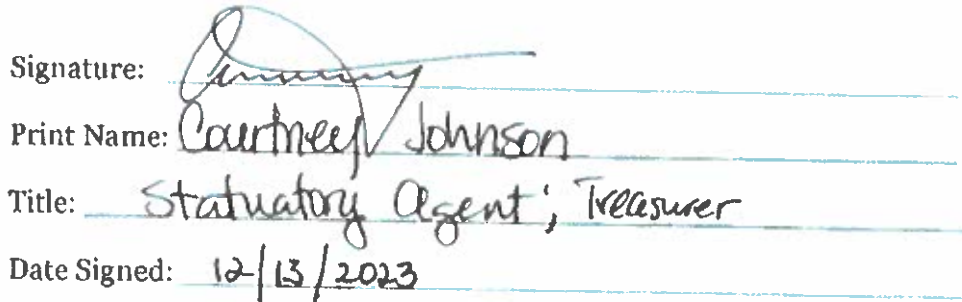 Signature:
Print Name: Courtney Johnson
Title: Statuatory Agent; Treasurer
Date Signed: 12/13/2023